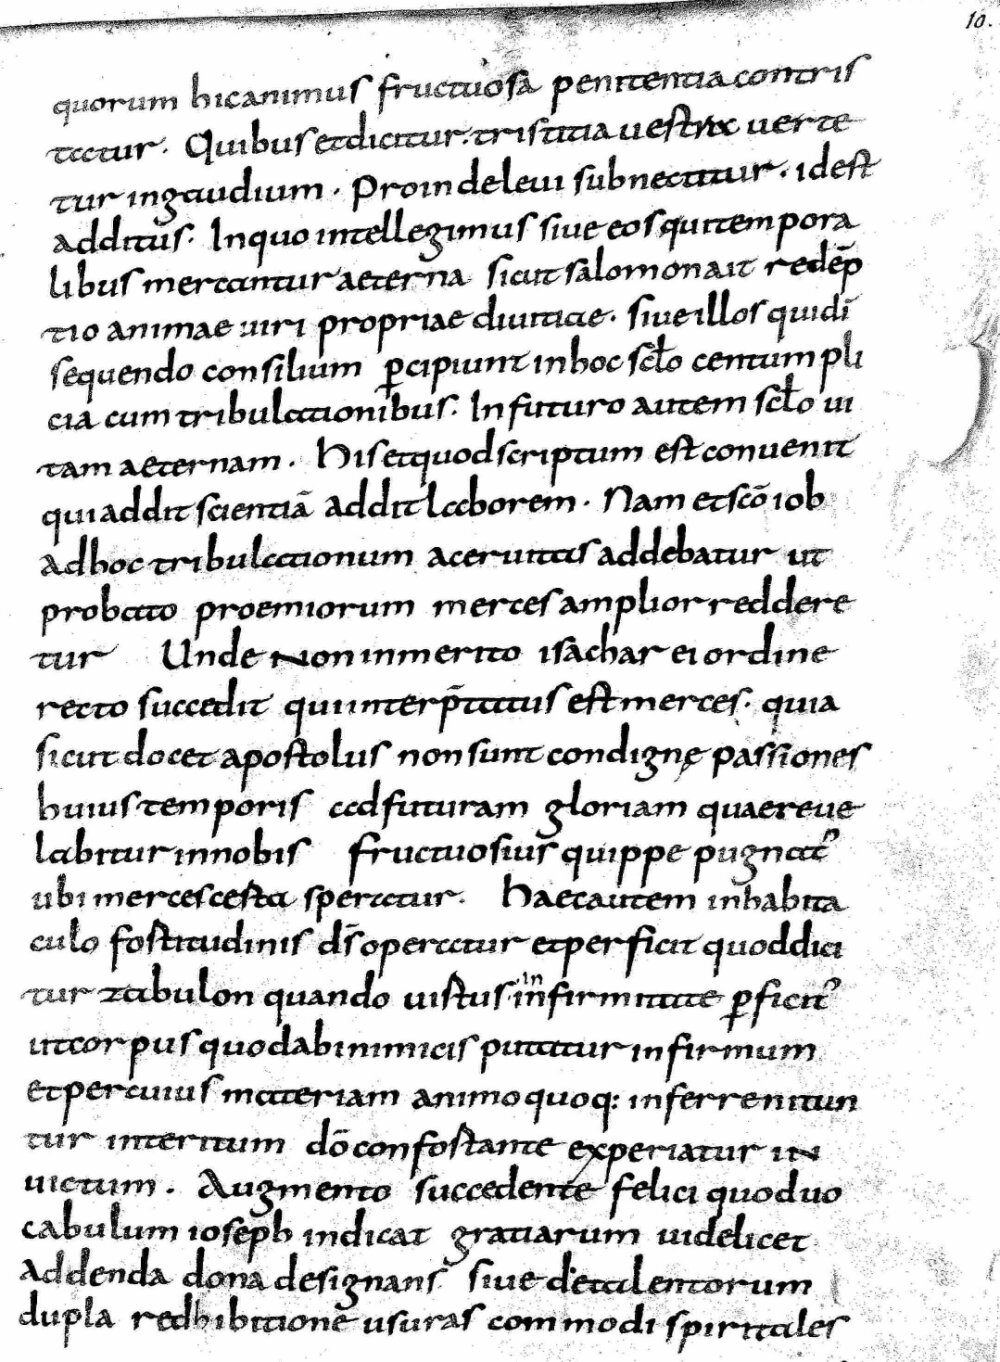 10.
quorum hic animus fructuosa penitentia contris
tatur. Quibus et dicitur. tristitia uestra uerte
tur in gaudium. Proinde leui subnectitur. id est
additus. In quo intellegimus siue eos qui tempora
libus mercantur aeterna sicut salomon ait redēp
tio animae uiri propriae diuitiae. siue illos qui dī
sequendo consilium ꝑcipiunt in hoc scł̄o centum pli
cia cum tribulationibus. In futuro autem scł̄o ui
tam aeternam. His et quod scriptum est conuenit
qui addit scientiā addit laborem. Nam et scō iob
ad hoc tribulationum aceruitas addebatur ut
probato proemiorum merces amplior reddere
tur Unde non inmerito isachar ei ordine
recto succedit qui interp̄tatus est merces. quia
sicut docet apostolus non sunt condignę passiones
huius temporis ad futuram gloriam quae reue
labitur in nobis fructuosius quippe pugnat᾽
ubi merces certa speratur. Haec autem in habita
culo fortitudinis dr̄ operatur et perficit quod dici
tur zabulon quando uirtus in infirmitate ꝑficit᾽
ut corpus quod ab inimicis putatur infirmum
et per cuius materiam animo quoq: inferre nitun
tur interitum dō confortante experiatur in
uictum. Augmento succedente felici quod uo
cabulum ioseph indicat gratiarum uidelicet
addenda dona designans siue de talentorum
dupla redhibitione usuras commodi spiritales